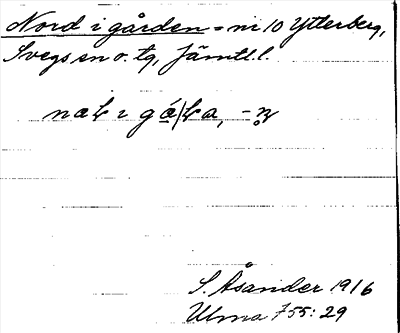 Nord i gården = nr 10 Ytterberg,
Svegs sn o. tg, Jämtl. l.
S. Åsander 1916
Ulma 755:29